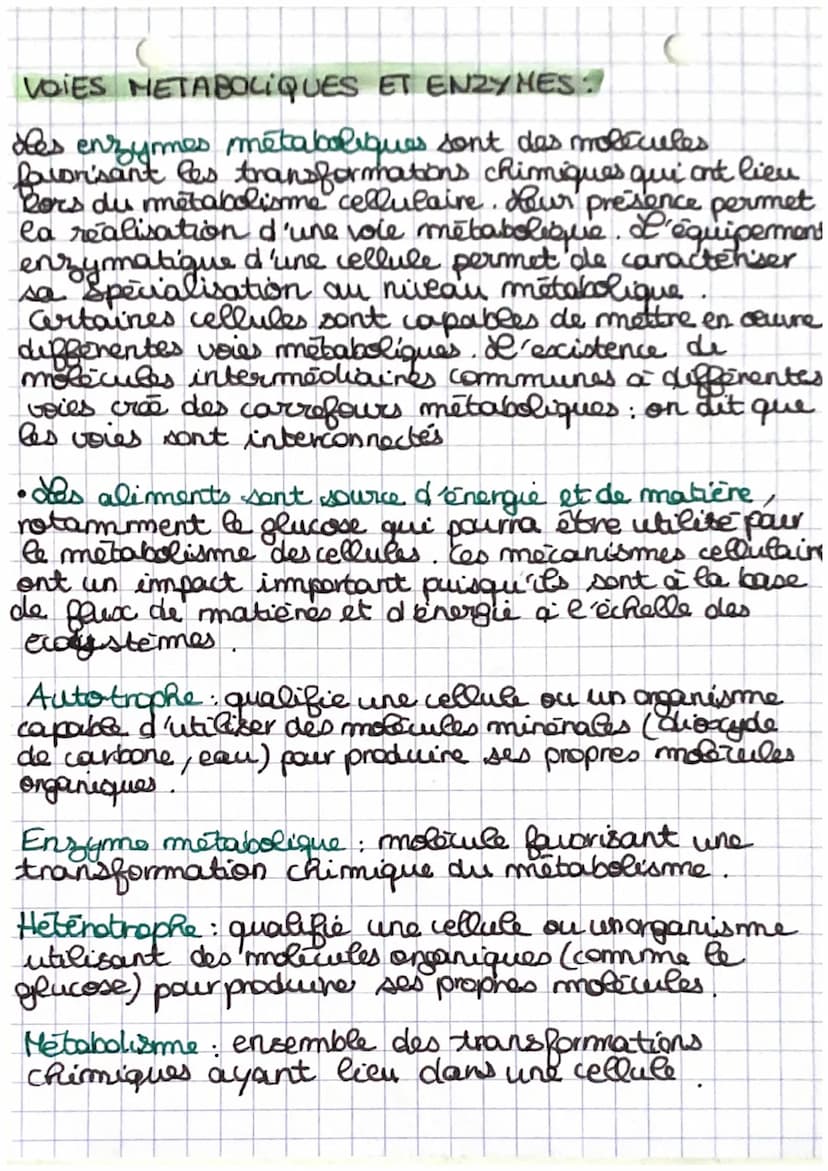 VOIES METABOLIQUES ET ENZYMES :
Les enzymes métaboliques sont des molécules
favorisant les transformations chimiques qui ont lieu
lors du métabolisme cellulaire. Leur présence permet
la réalisation d'une voie métabolique. L'équipement
enzymatique d'une cellule permet de caractériser
sa spécialisation au niveau métabolique.
Certaines cellules sont capables de mettre en œuvre
différentes voies métaboliques. L'existence de
molécules intermédiaires communes à différentes
voies créé des carrefours métaboliques : on dit que
les voies sont interconnectés
• Les aliments sont source d'énergie et de matière,
notamment le glucose qui pourra être utilisé pour
le métabolisme des cellules. Ces mécanismes cellulair
ont un impact important puisqu'ils sont à la base
de flux de matières et d'énergie à l'échelle des
écosystèmes.
Autotrophe : qualifie une cellule ou un organisme
capable d'utiliser des molécules minérales (dioxyde
de carbone, eau) pour produire ses propres molécules
organiques.
Enzyme métabolique : molécule favorisant une
transformation chimique du métabolisme.
Hétérotrophe : qualifié une cellule ou un organisme
utilisant des molécules organiques (comme le
glucose) pour produire ses propres molécules.
Métabolisme : ensemble des transformations
chimiques ayant lieu dans une cellule.